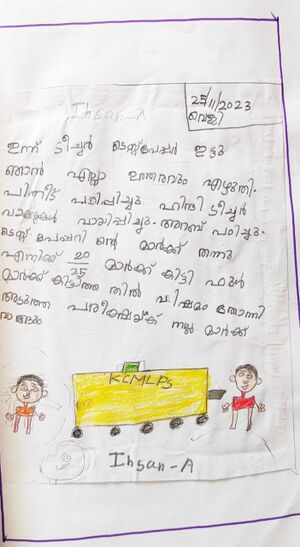 Ihsan-A
25/11/2023
വെള്ളി
ഇന്ന് ടീച്ചർ ടെസ്റ്റ്പേപ്പർ ഇട്ടു
ഞാൻ എല്ലാ ഉത്തരവും എഴുതി.
പിന്നീട് പഠിപ്പിച്ചു ഹിന്ദി ടീച്ചർ
വാക്കുകൾ പഠിപ്പിച്ചു. അറബ് പഠിച്ചു.
ടെസ്റ്റ് പേപ്പറി ന്റെ മാർക്ക് തന്നു
എനിക്ക് 20/25 മാർക്ക് കിട്ടി ഫുൾ
മാർക്ക് കിട്ടാത്ത തിൽ വിഷമം തോന്നി
അടുത്ത പരീക്ഷയ്ക് നല്ല മാർക്ക്
വാങ്ങും
KCMLPS
Ihsan-A